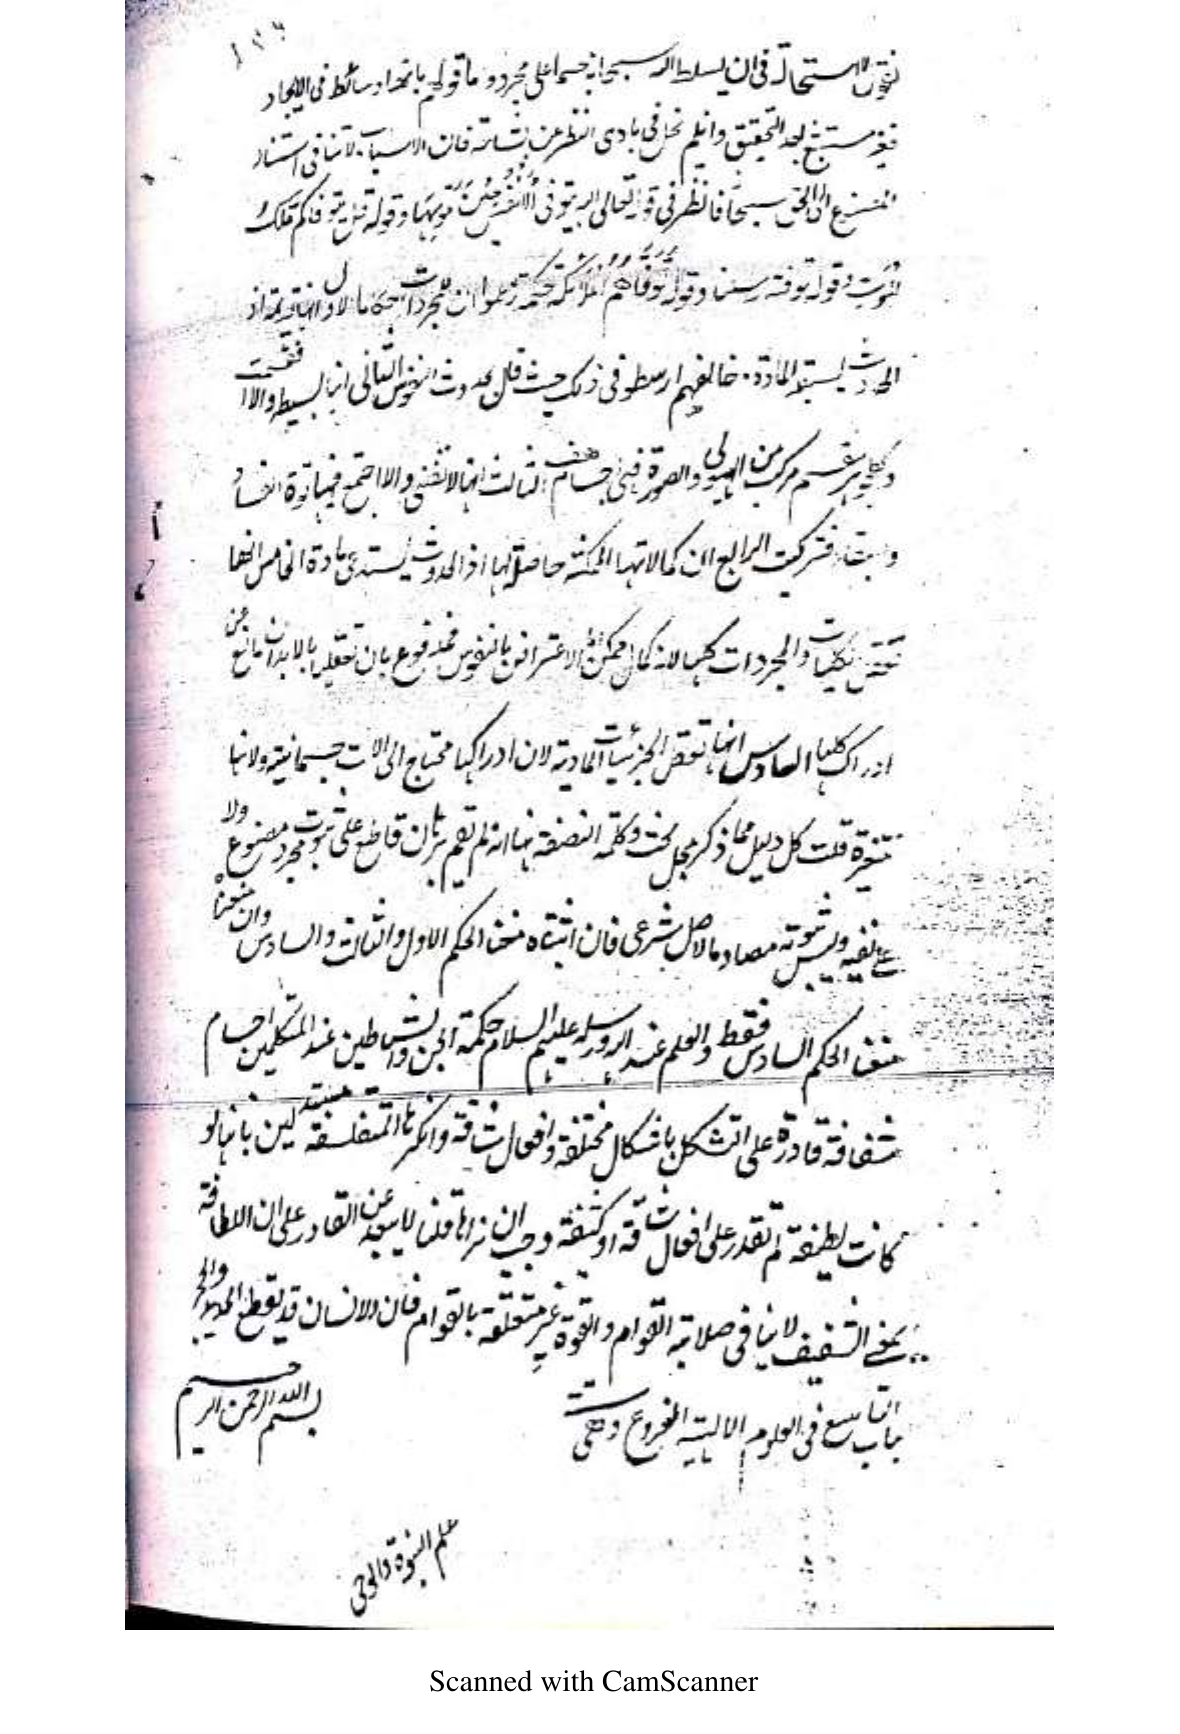 ١٣٦
نقول لا استحالة فى ان يسلط الله سبحانه جسما على مجرد و ما قولهم باتحاد وسائط فى الايجاد
فغير مستبشع لجد التحقيق وان لم نخل فى بادى النظر عن بشاعة فان الاسباب لا تنافى استناد
الى الحق سبحانه فانظر فى قوله تعالى الله يتوفى الانفس حين موتها وقوله قل يتوفاكم ملك
الموت وقوله توفته رسلنا وقوله توفاهم الملائكة حكمة زعموا ان للمجردات احكاما الاول انها قديمة اذ
الحادث يستبد المادة خالفهم ارسطو فى ذلك حيث قال بحدوث النفوس الثانى انها بسيطة والا انقسمت
وكل جوهر منقسم مركب من الهيولى والصورة فهى جسم هف الثالث انها لا تفنى والا اجتمع فيها قوة الفساد
و فتركبت الرابع ان كمالاتها الممكنة حاصلة لها اذ الحدوث يستدعى مادة الخامس انها
تتعقل الكليات والمجردات كلها لانه كمال ممكن الاعتراض بالنفوس فمدفوع بان تعلقها بالابدان مانع عن
ادراك كلها السادس انها لا تعقل الجزئيات المادية لان ادراكها محتاج الى الات جسمانية ولانها
متغيرة قلت كل دليل مما ذكر محل بحث وكلمة النصفة انه لم تقم برهان قاطع على ثبوت مجرد مصنوع ولا
على نفيه وليس ثبوته مصادما لاصل شرعى فان اثبتناه منعنا الحكم الاول والثالث والسادس وان منعناه
منعنا الحكم السادس فقط والعلم عند الله ورسله عليهم السلام حكمة الجن والشياطين عند المتكلمين اجسام
شفافة قادرة على التشكل باشكال مختلفة وافعال شاقة وانكرها المتفلسفة مستدلين بانها لو
كانت لطيفة لم تقدر على افعال شاقة او كثيفة وجب ان نراها قلنا لا يبعد عن القادر على ان اللطافة
بمعنى الشفيف لا ينافى صلابة القوام والقوة غير متعلقة بالقوام فان الانسان قد يقطع الحديد والحجر
الباب التاسع فى العلوم الالهية الفروع وهى
بسم الله الرحمن الرحيم
علم النبوة والوحى
Scanned with CamScanner